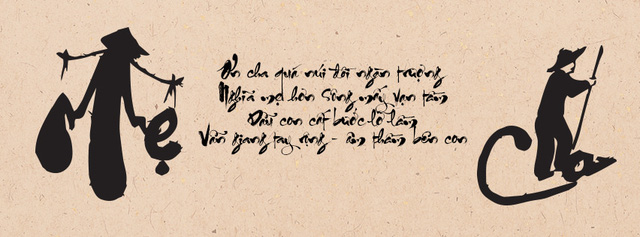 Mẹ
Ơn cha quá núi đồi ngàn trượng
Nghĩa mẹ hơn sông mấy vạn tầm
Dẫu con cất bước lỡ lầm
Vẫn giang tay rộng - âm thầm bên con
Cha